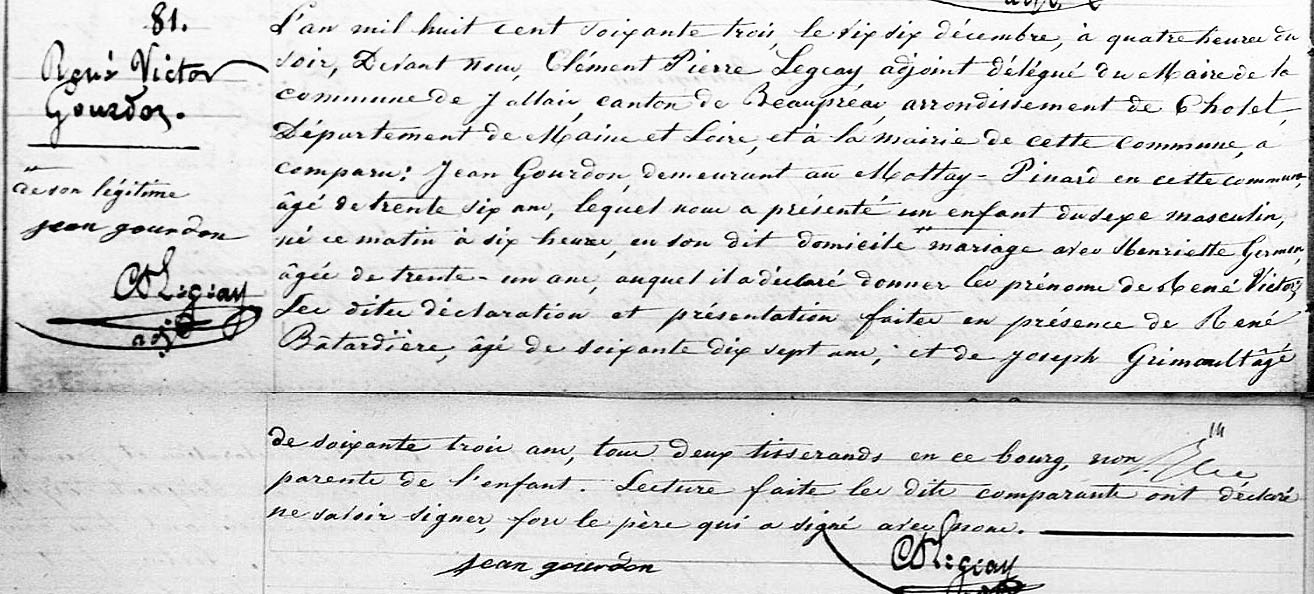 81.
René Victor
Gourdon.
de son légitime
jean gourdon
C Legeay
adjt
L'an mil huit cent soixante trois, le dix six décembre, à quatre heures du
soir, Devant nous, Clément Pierre Legeay adjoint délégué du Maire de la
commune de Jallais, canton de Beaupréau, arrondissement de Cholet,
Département de Maine et Loire, et à la mairie de cette commune, a
comparu: Jean Gourdon, demeurant au Mottay-Pinard en cette commune,
âgé de trente six ans, lequel nous a présenté un enfant du sexe masculin,
né ce matin à six heures, en son dit domicile mariage avec Henriette Germon,
âgée de trente-un ans, auquel il a déclaré donner les prénoms de René Victor,
Les dites déclaration et présentation faites en présence de René
Bâtardière, âgé de soixante dix sept ans, et de Joseph Grimault âgé
de soixante trois ans, tous deux tisserands en ce bourg, non
parents de l'enfant. Lecture faite les dits comparants ont déclaré
ne savoir signer, fors le père qui a signé avec nous.
jean gourdon
C Legeay